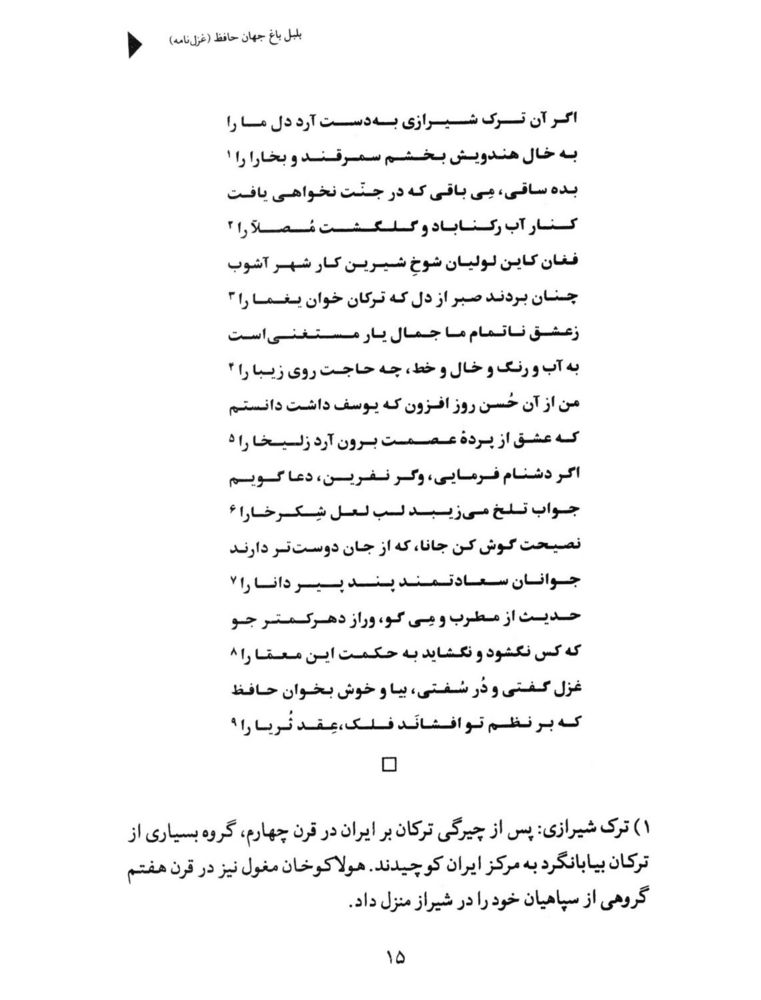 بلبل باغ جهان حافظ (غزل‌نامه)
اگر آن ترک شیرازی به‌دست آرد دل ما را
به خال هندویش بخشم سمرقند و بخارا را ۱
بده ساقی، مِی باقی که در جنّت نخواهی یافت
کنار آب رکناباد و گلگشت مُصلّا را ۲
فغان کاین لولیان شوخِ شیرین کار شهر آشوب
چنان بردند صبر از دل که ترکان خوان یغما را ۳
زعشق ناتمام ما جمال یار مستغنی‌است
به آب و رنگ و خال و خط، چه حاجت روی زیبا را ۴
من از آن حُسن روز افزون که یوسف داشت دانستم
که عشق از پردهٔ عصمت برون آرد زلیخا را ۵
اگر دشنام فرمایی، وگر نفرین، دعا گویم
جواب تلخ می‌زیبد لب لعل شِکرخارا ۶
نصیحت گوش کن جانا، که از جان دوست‌تر دارند
جوانان سعادتمند پند پیر دانا را ۷
حدیث از مطرب و مِی گو، وراز دهرکمتر جو
که کس نگشود و نگشاید به حکمت این معمّا را ۸
غزل گفتی و دُر سُفتی، بیا و خوش بخوان حافظ
که بر نظم تو افشانَد فلک،عِقد ثُریا را ۹
۱) ترک شیرازی: پس از چیرگی ترکان بر ایران در قرن چهارم، گروه بسیاری از
ترکان بیابانگرد به مرکز ایران کوچیدند. هولاکوخان مغول نیز در قرن هفتم
گروهی از سپاهیان خود را در شیراز منزل داد.
۱۵